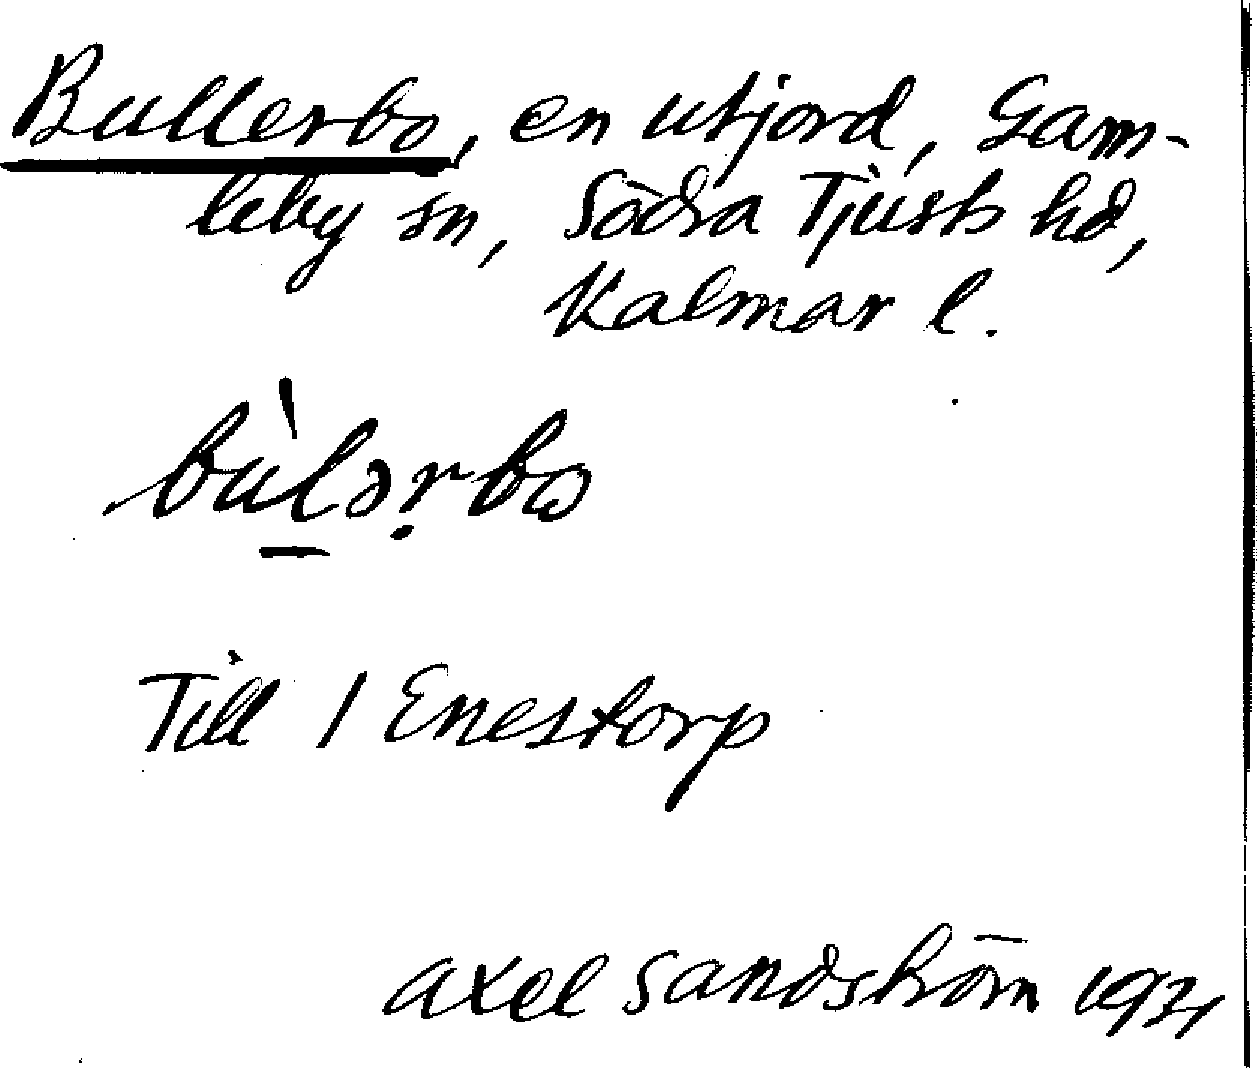 Bullerbo, en utjord, Gam-
leby sn, Södra Tjusts hd,
Kalmar l.
bùlərbo
Till 1 Enestorp
Axel Sandström 1931